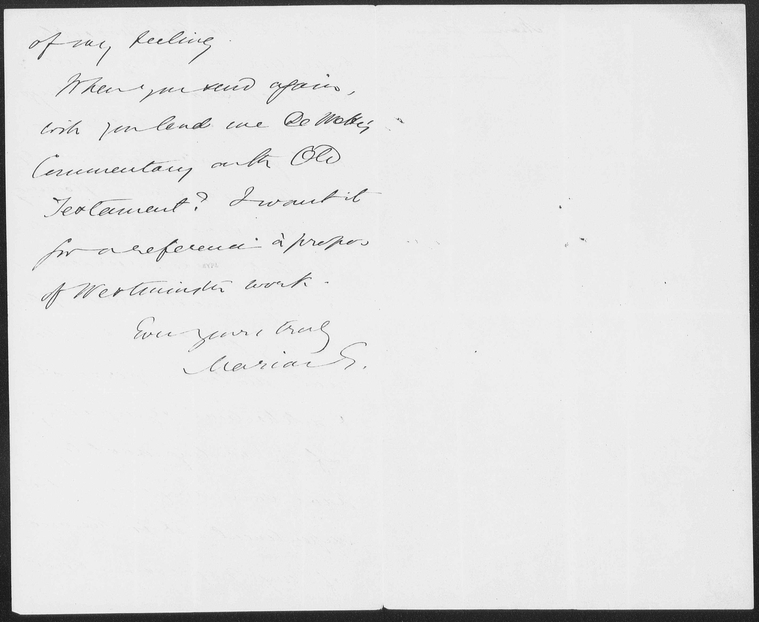 of my feeling.
When you send again,
will you lend me De Wette's
Commentary on the Old
Testament? I want it
for a reference à propos
of Westminster work.
Ever yours truly
Marian E.